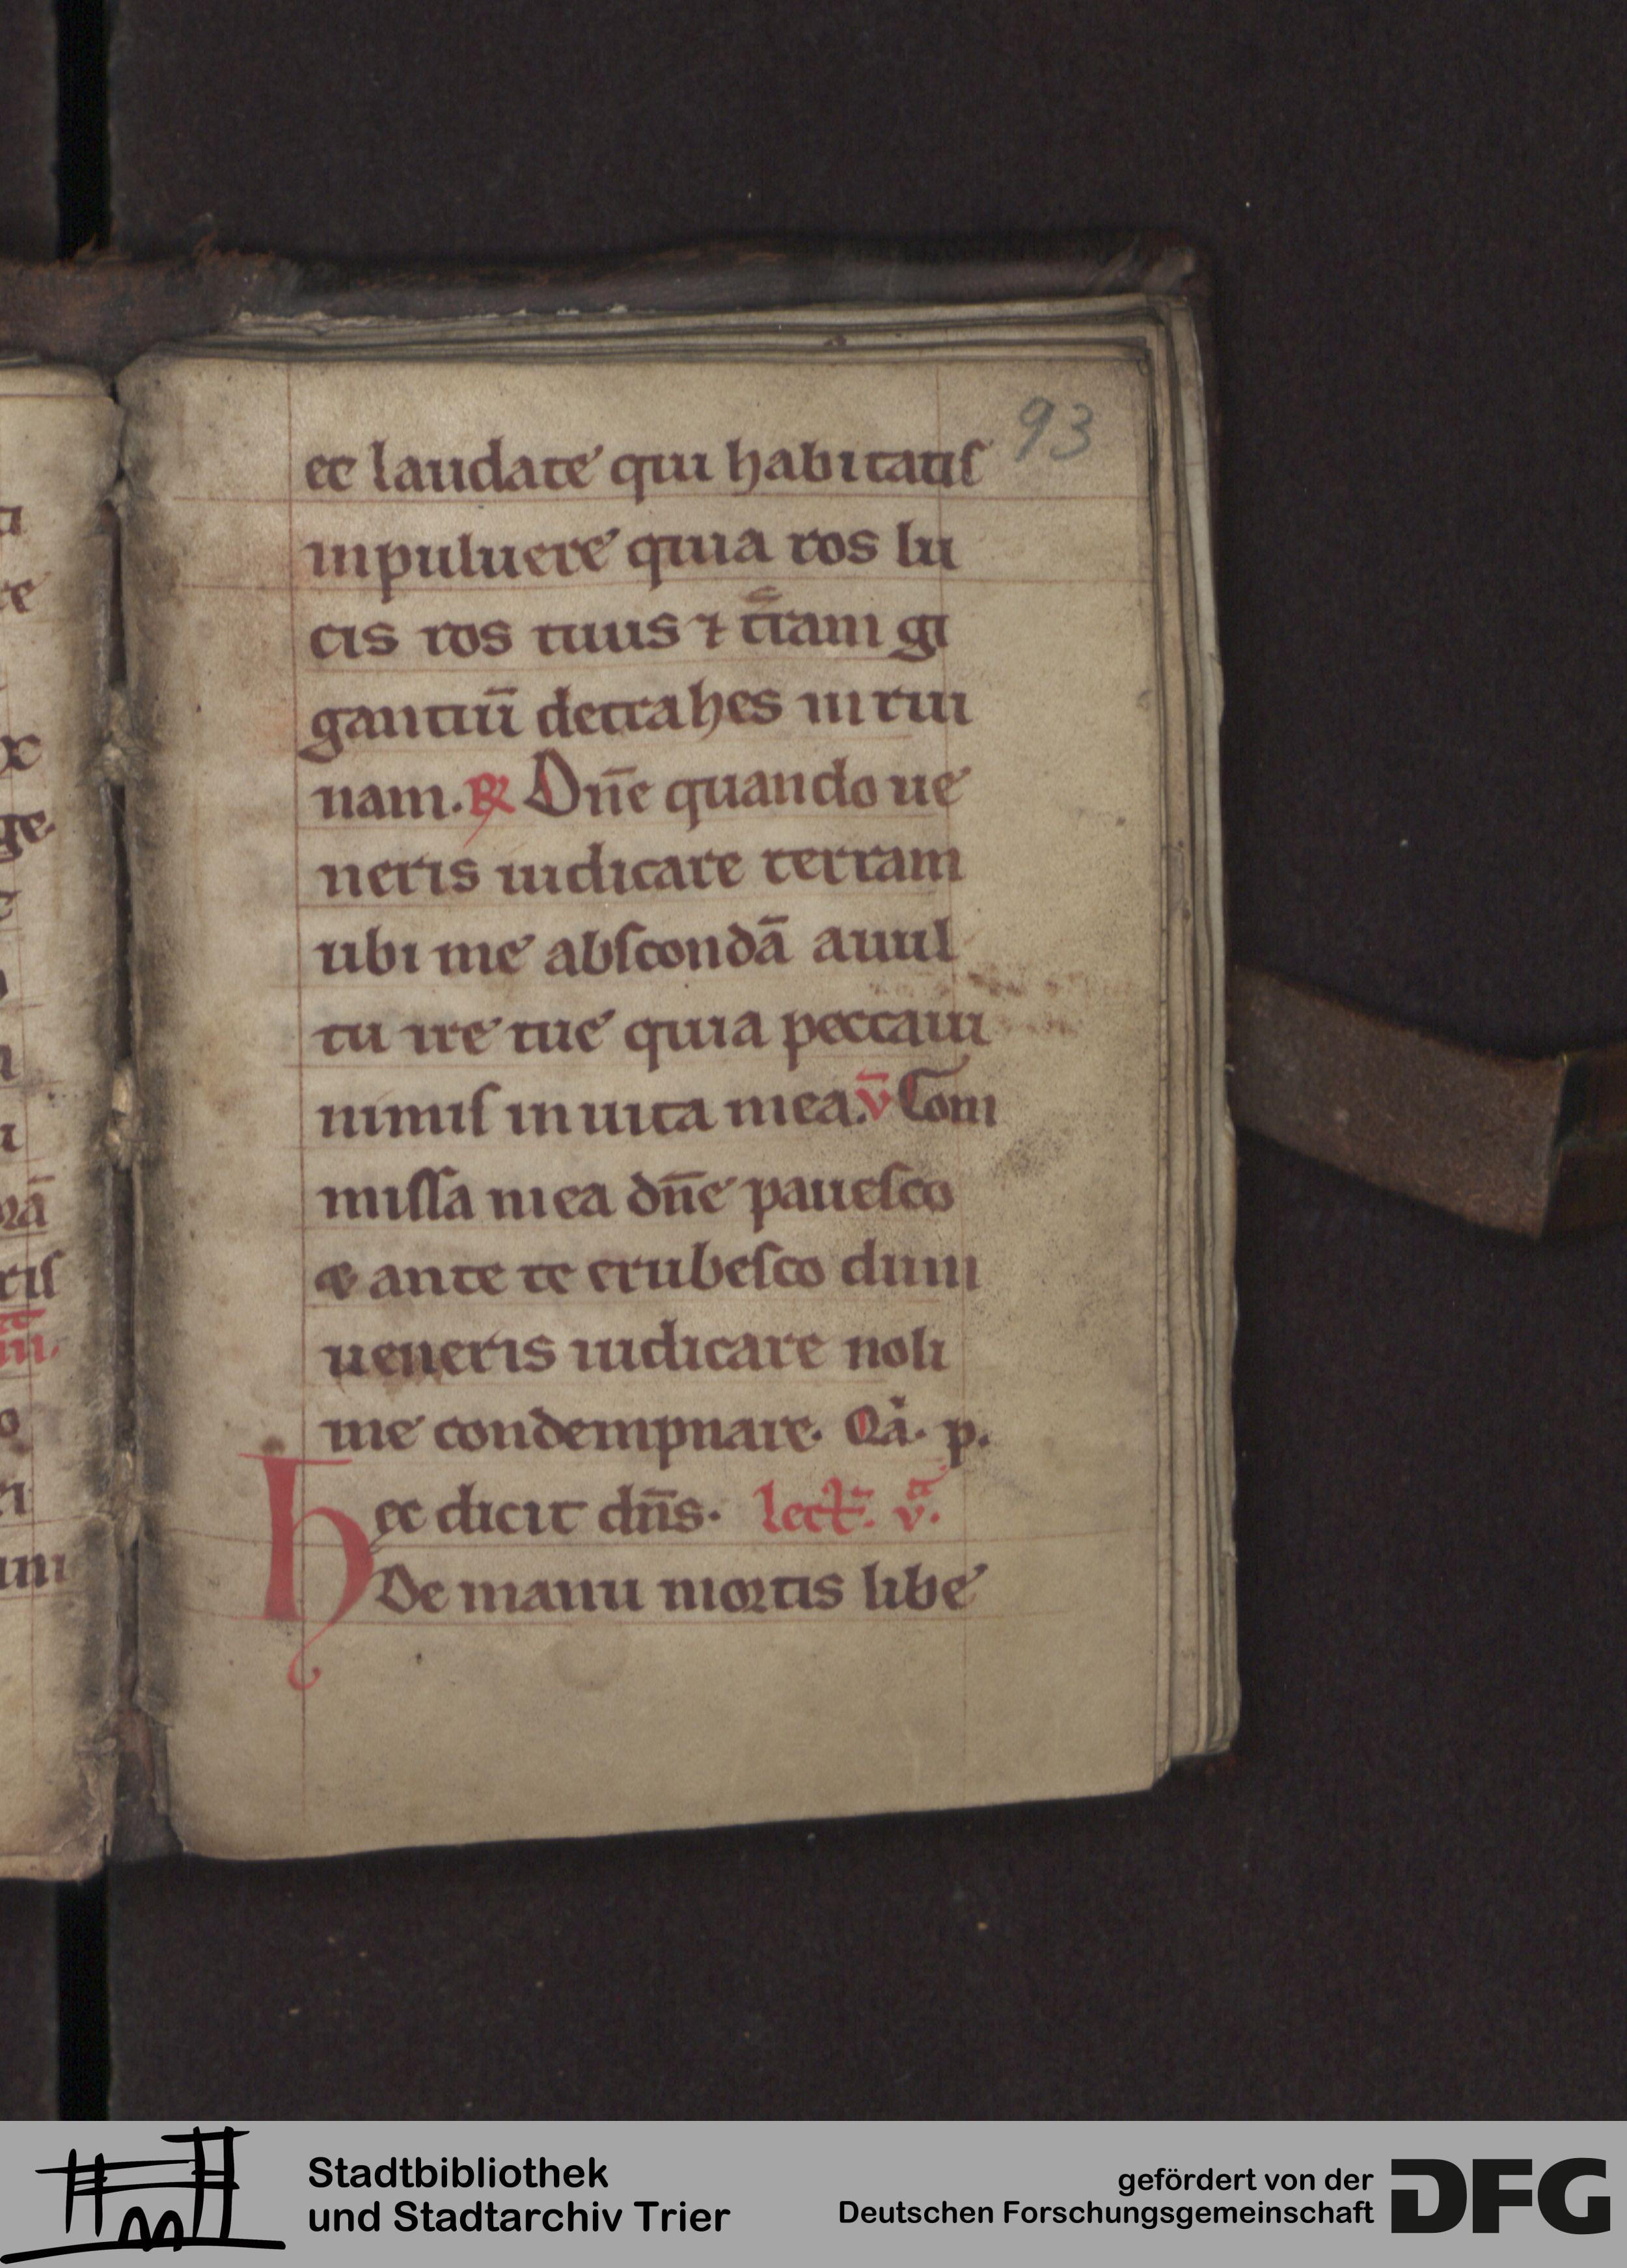 93
et laudate qui habitatis
inpuluere quia ros lu
cis ros tuus ⁊ t̄ram gi
gantiū detrahes in rui
nam. ℞ Dn̄e quando ue
neris iudicare terram
ubi me abscondā auul
tu ire tue quia peccaui
nimis in uita mea. v̄ Com
missa mea dn̄e pauesco
& ante te erubesco dum
ueneris iudicare noli
me condempnare. Q̄a. p.
hec dicit dn̄s. lect̄. v.ͣ
De manu mortis libe
Stadtbibliothek
und Stadtarchiv Trier
gefördert von der
Deutschen Forschungsgemeinschaft
DFG